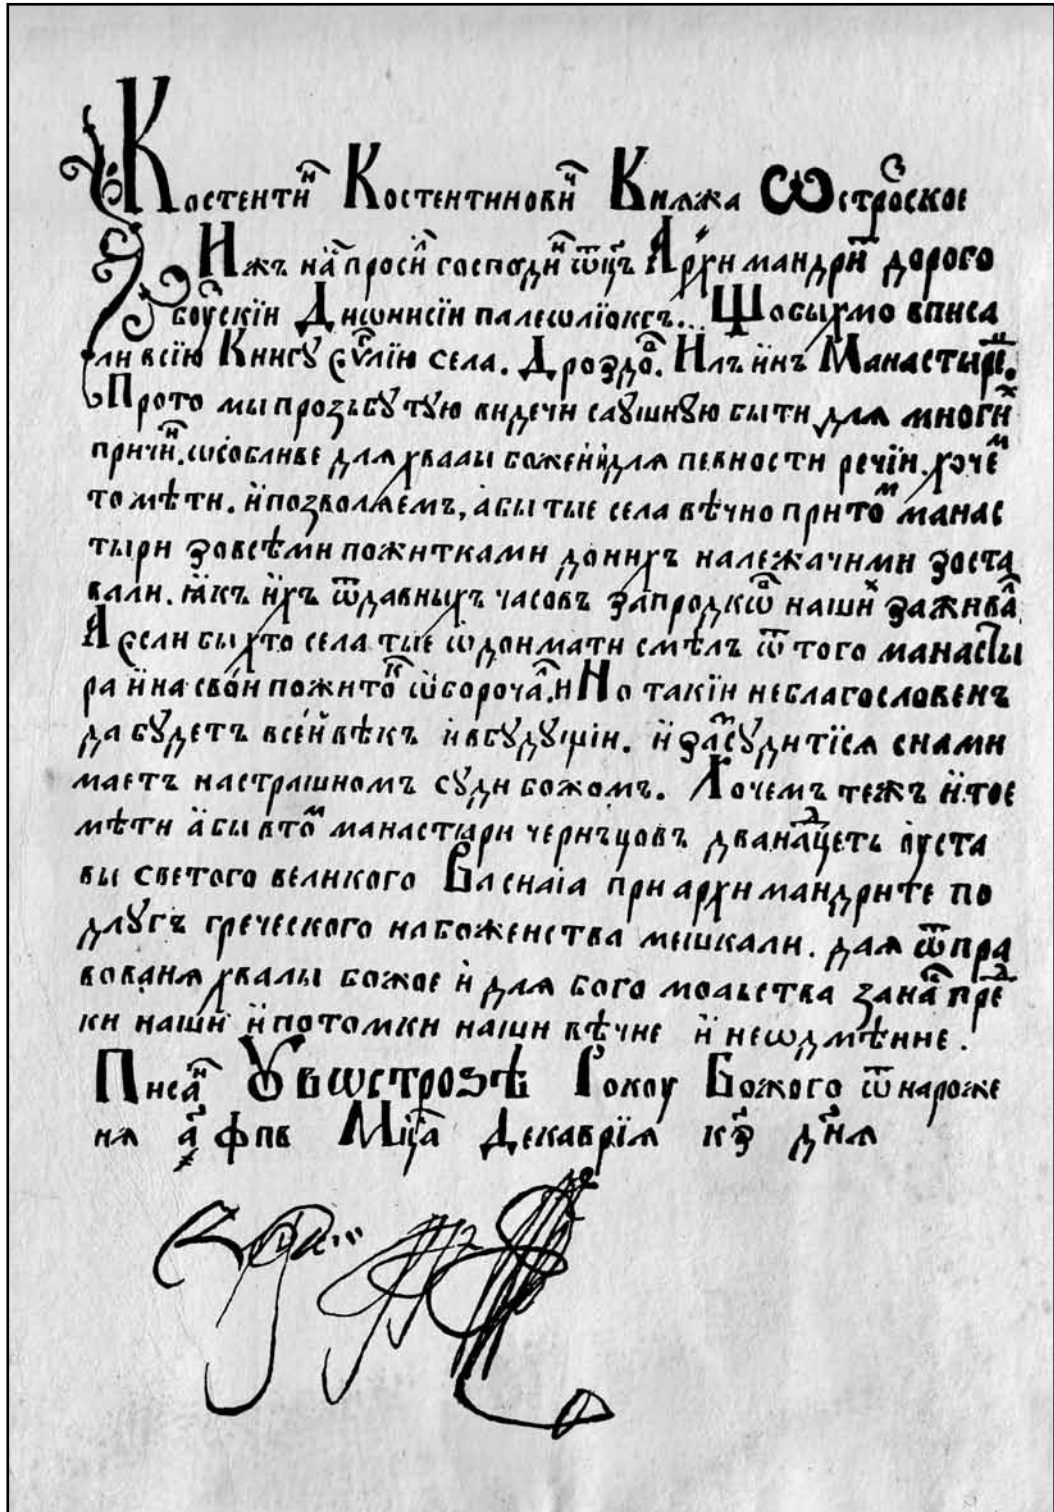 Костентиⷩ҇ Костентиновиⷱ҇ Кнѧжа Ѡстроⷭ҇кое
Ижъ наⷭ҇ просиⷧ҇ господиⷩ҇ ѿц҃ъ Архимандриⷮ҇ дорого
боуⷤ҇скїи Диѡнисїи палеѡлїокгъ... Щобыхмо вписа
ли всїю Книгу еѵⷢ҇лїю села. Дроздоⷡ҇. Манастырⷭ҇.
Прото мы прозьбу тую видечи слушную быти для многиⷯ
причиⷩ҇. ѡсобливе для хвалы божеи и для певности речїи. хочеⷨ
то мѣти. и позволяемъ, абы тые села вѣчно при тоⷨ манас
тыри зовсѣми пожитками до нихъ належачими зоста
вали. ꙗкъ ихъ ѿдавныхъ часовъ за продкѡⷡ҇ нашиⷯ заживаⷧ҇
А если бы хто села тые ѡдоимати смѣлъ ѿ того манасты
ра и на свои пожитоⷦ҇ ѡборочаⷧ҇. Но такїи неблагословенъ
да будетъ в сеи вѣкъ и в будущїи. и засудитїся с нами
маетъ на страшномъ суди божомъ. Хочемъ тежъ и тое
мѣти абы в тоⷨ манастыри чернъцовъ дванаⷣ҇цеть
вы светого великого Василїа при архимандрите по
длугъ греческого набоженства мешкали. для ѿпра
вованя хвалы божое и для богомольства за наⷭ҇ преⷣ҇
ки наши и потомки наши вѣчне и неѡдмѣнне.
Писаⷩ҇ У в ѡстрозѣ Року Божого ѿ нароже
ня ҂а҃ фпв Мцⷭ҇а Декаврїя к҃з дн҃я